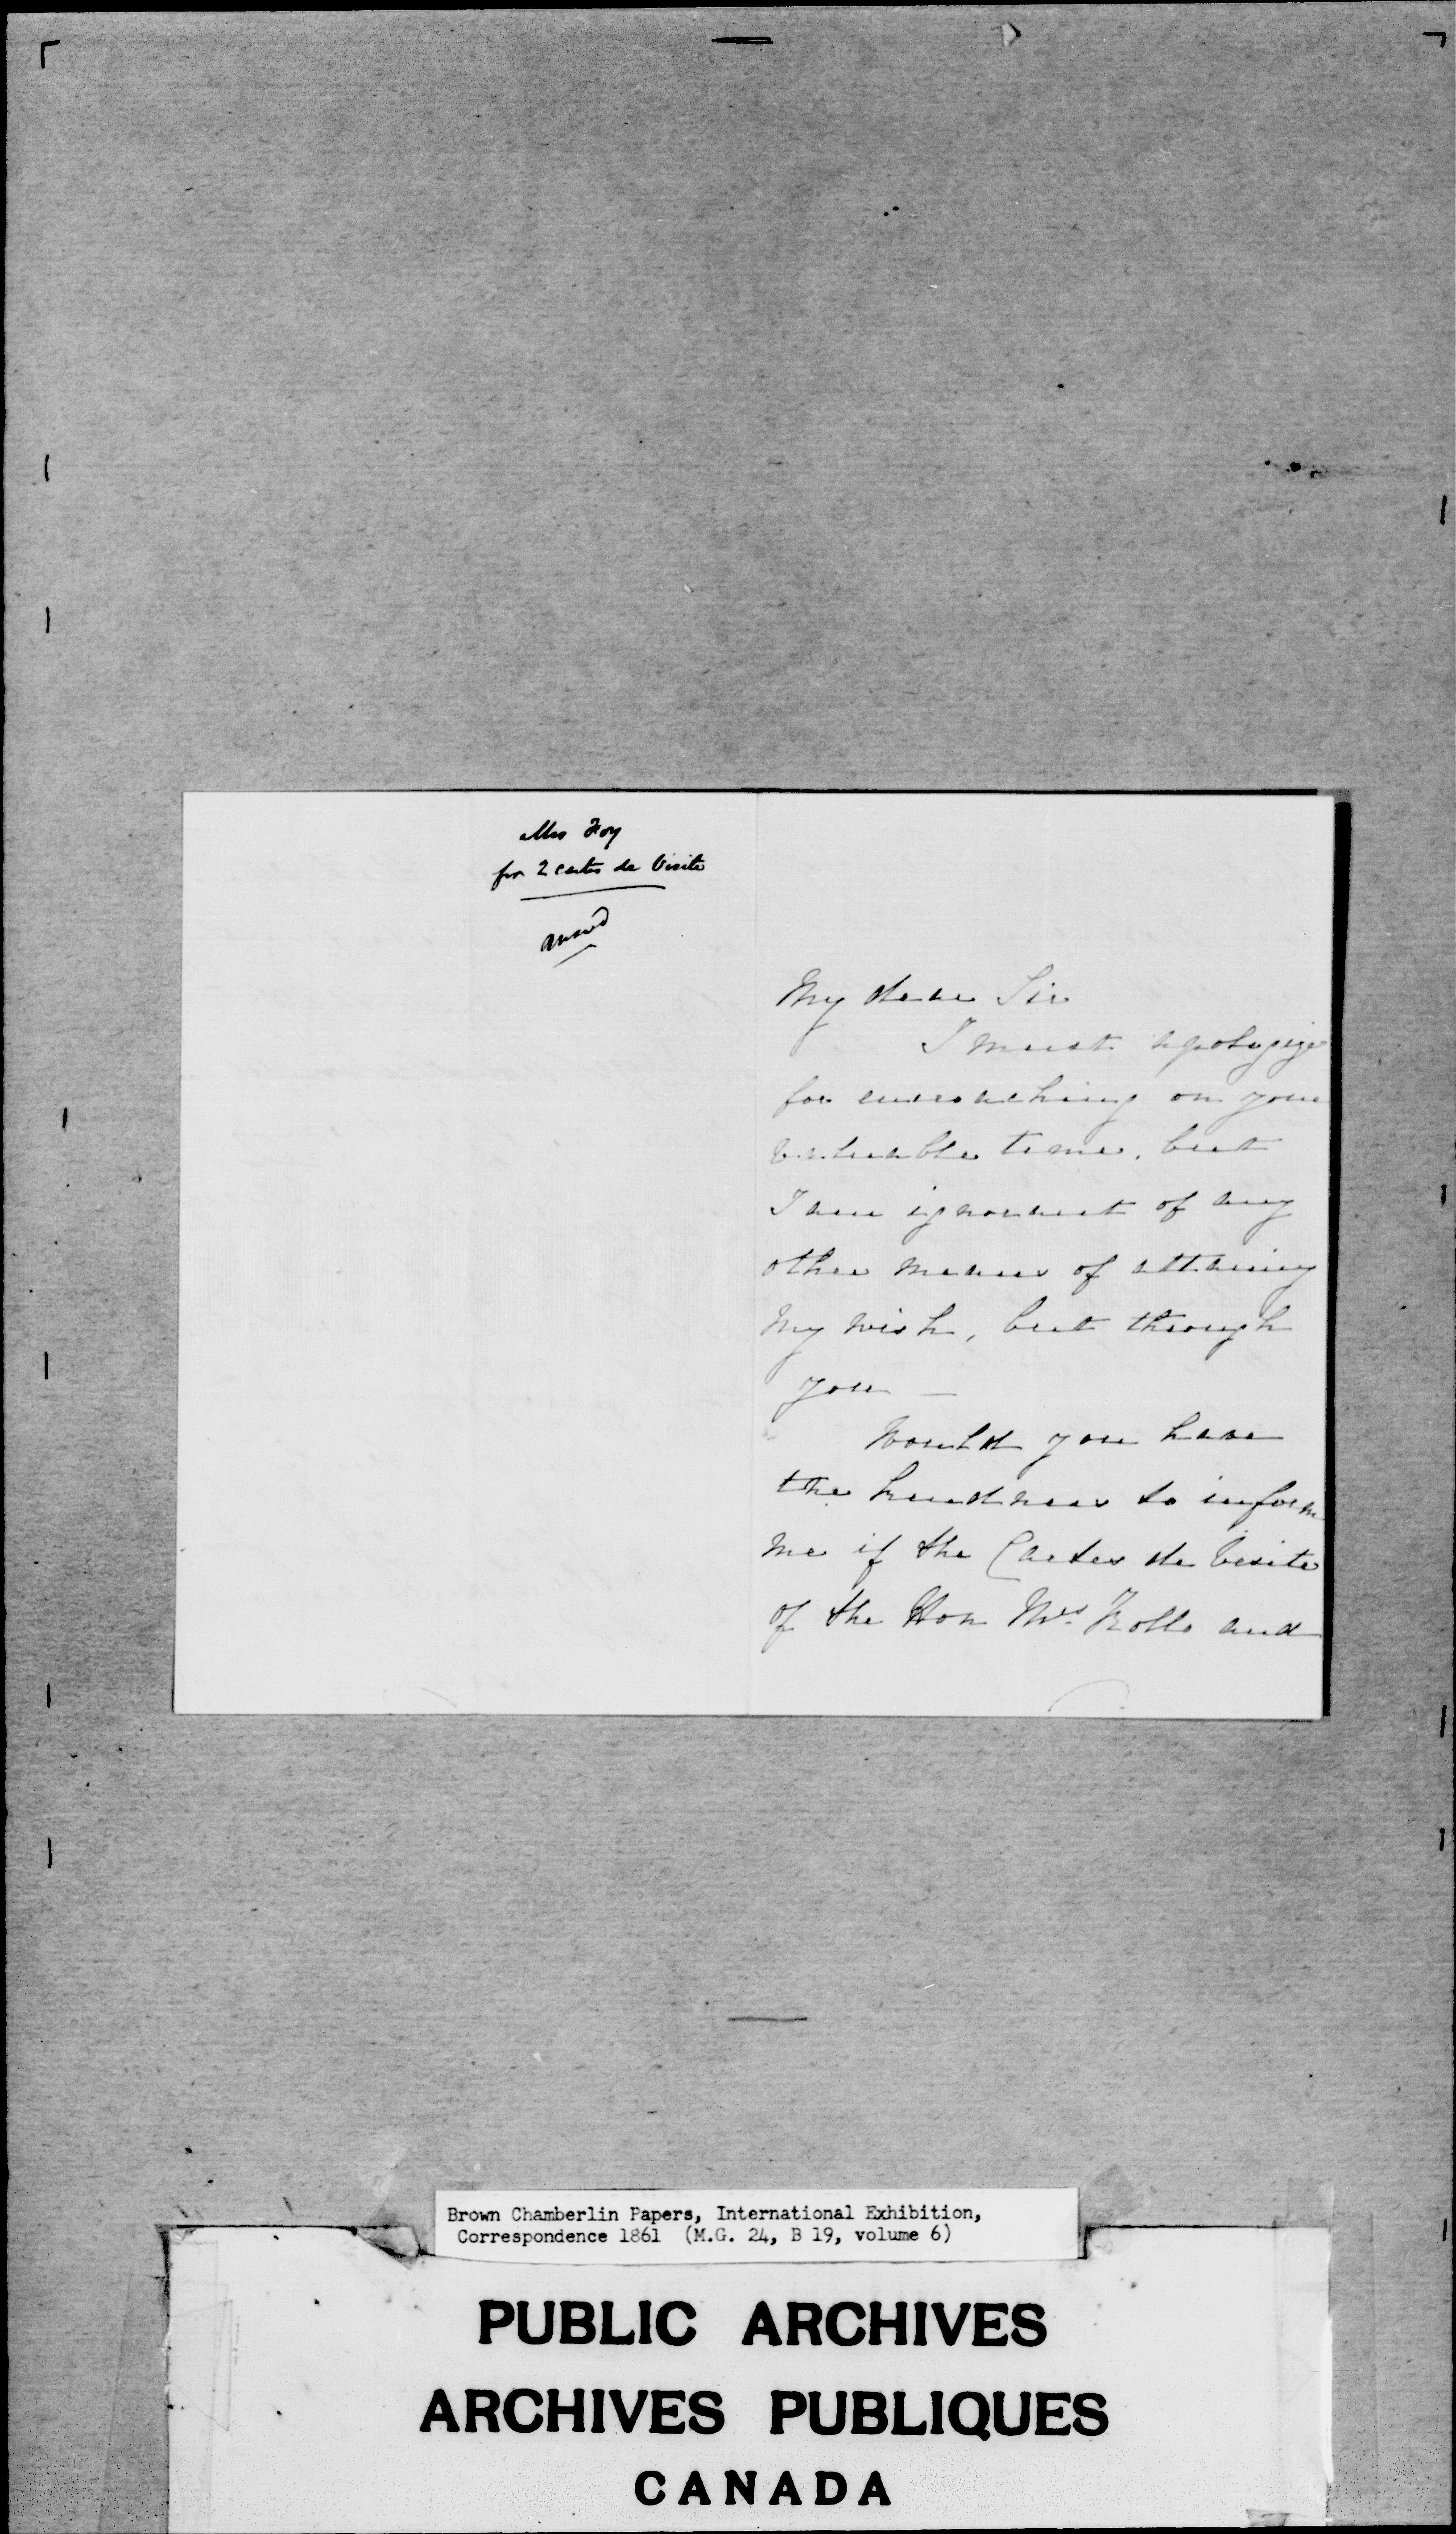 Mrs Foy
for 2 cartes de Visite
answd
My dear Sir
I must apologize
for encroaching on your
valuable time, but
I am ignorant of any
other means of attaining
my wish, but through
you —
Would you have
the kindness to inform
me if the Cartes de Visite
of the Hon Mrs Rollo and
Brown Chamberlin Papers, International Exhibition,
Correspondence 1861 (M.G. 24, B 19, volume 6)
PUBLIC ARCHIVES
ARCHIVES PUBLIQUES
CANADA